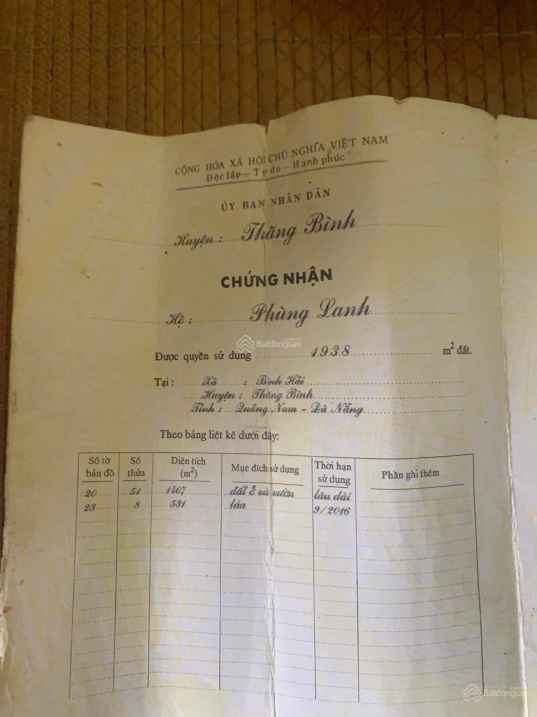 CỘNG HÒA XÃ HỘI CHỦ NGHĨA VIỆT NAM
Độc lập — Tự do — Hạnh phúc
ỦY BAN NHÂN DÂN
Huyện : Thăng Bình
CHỨNG NHẬN
Hộ : Phùng Lanh
Được quyền sử dụng 1938 m² đất.
Tại : Xã : Bình Hải
Huyện : Thăng Bình
Tỉnh : Quảng Nam - Đà Nẵng
Theo bảng liệt kê dưới đây:
Số tờ bản đồ Số thửa Diện tích (m²) Mục đích sử dụng Thời hạn sử dụng Phần ghi thêm
20 51 1407 đất ở và vườn lâu dài
23 8 531 lúa 9/2016
Batdongsan
Batdongsan